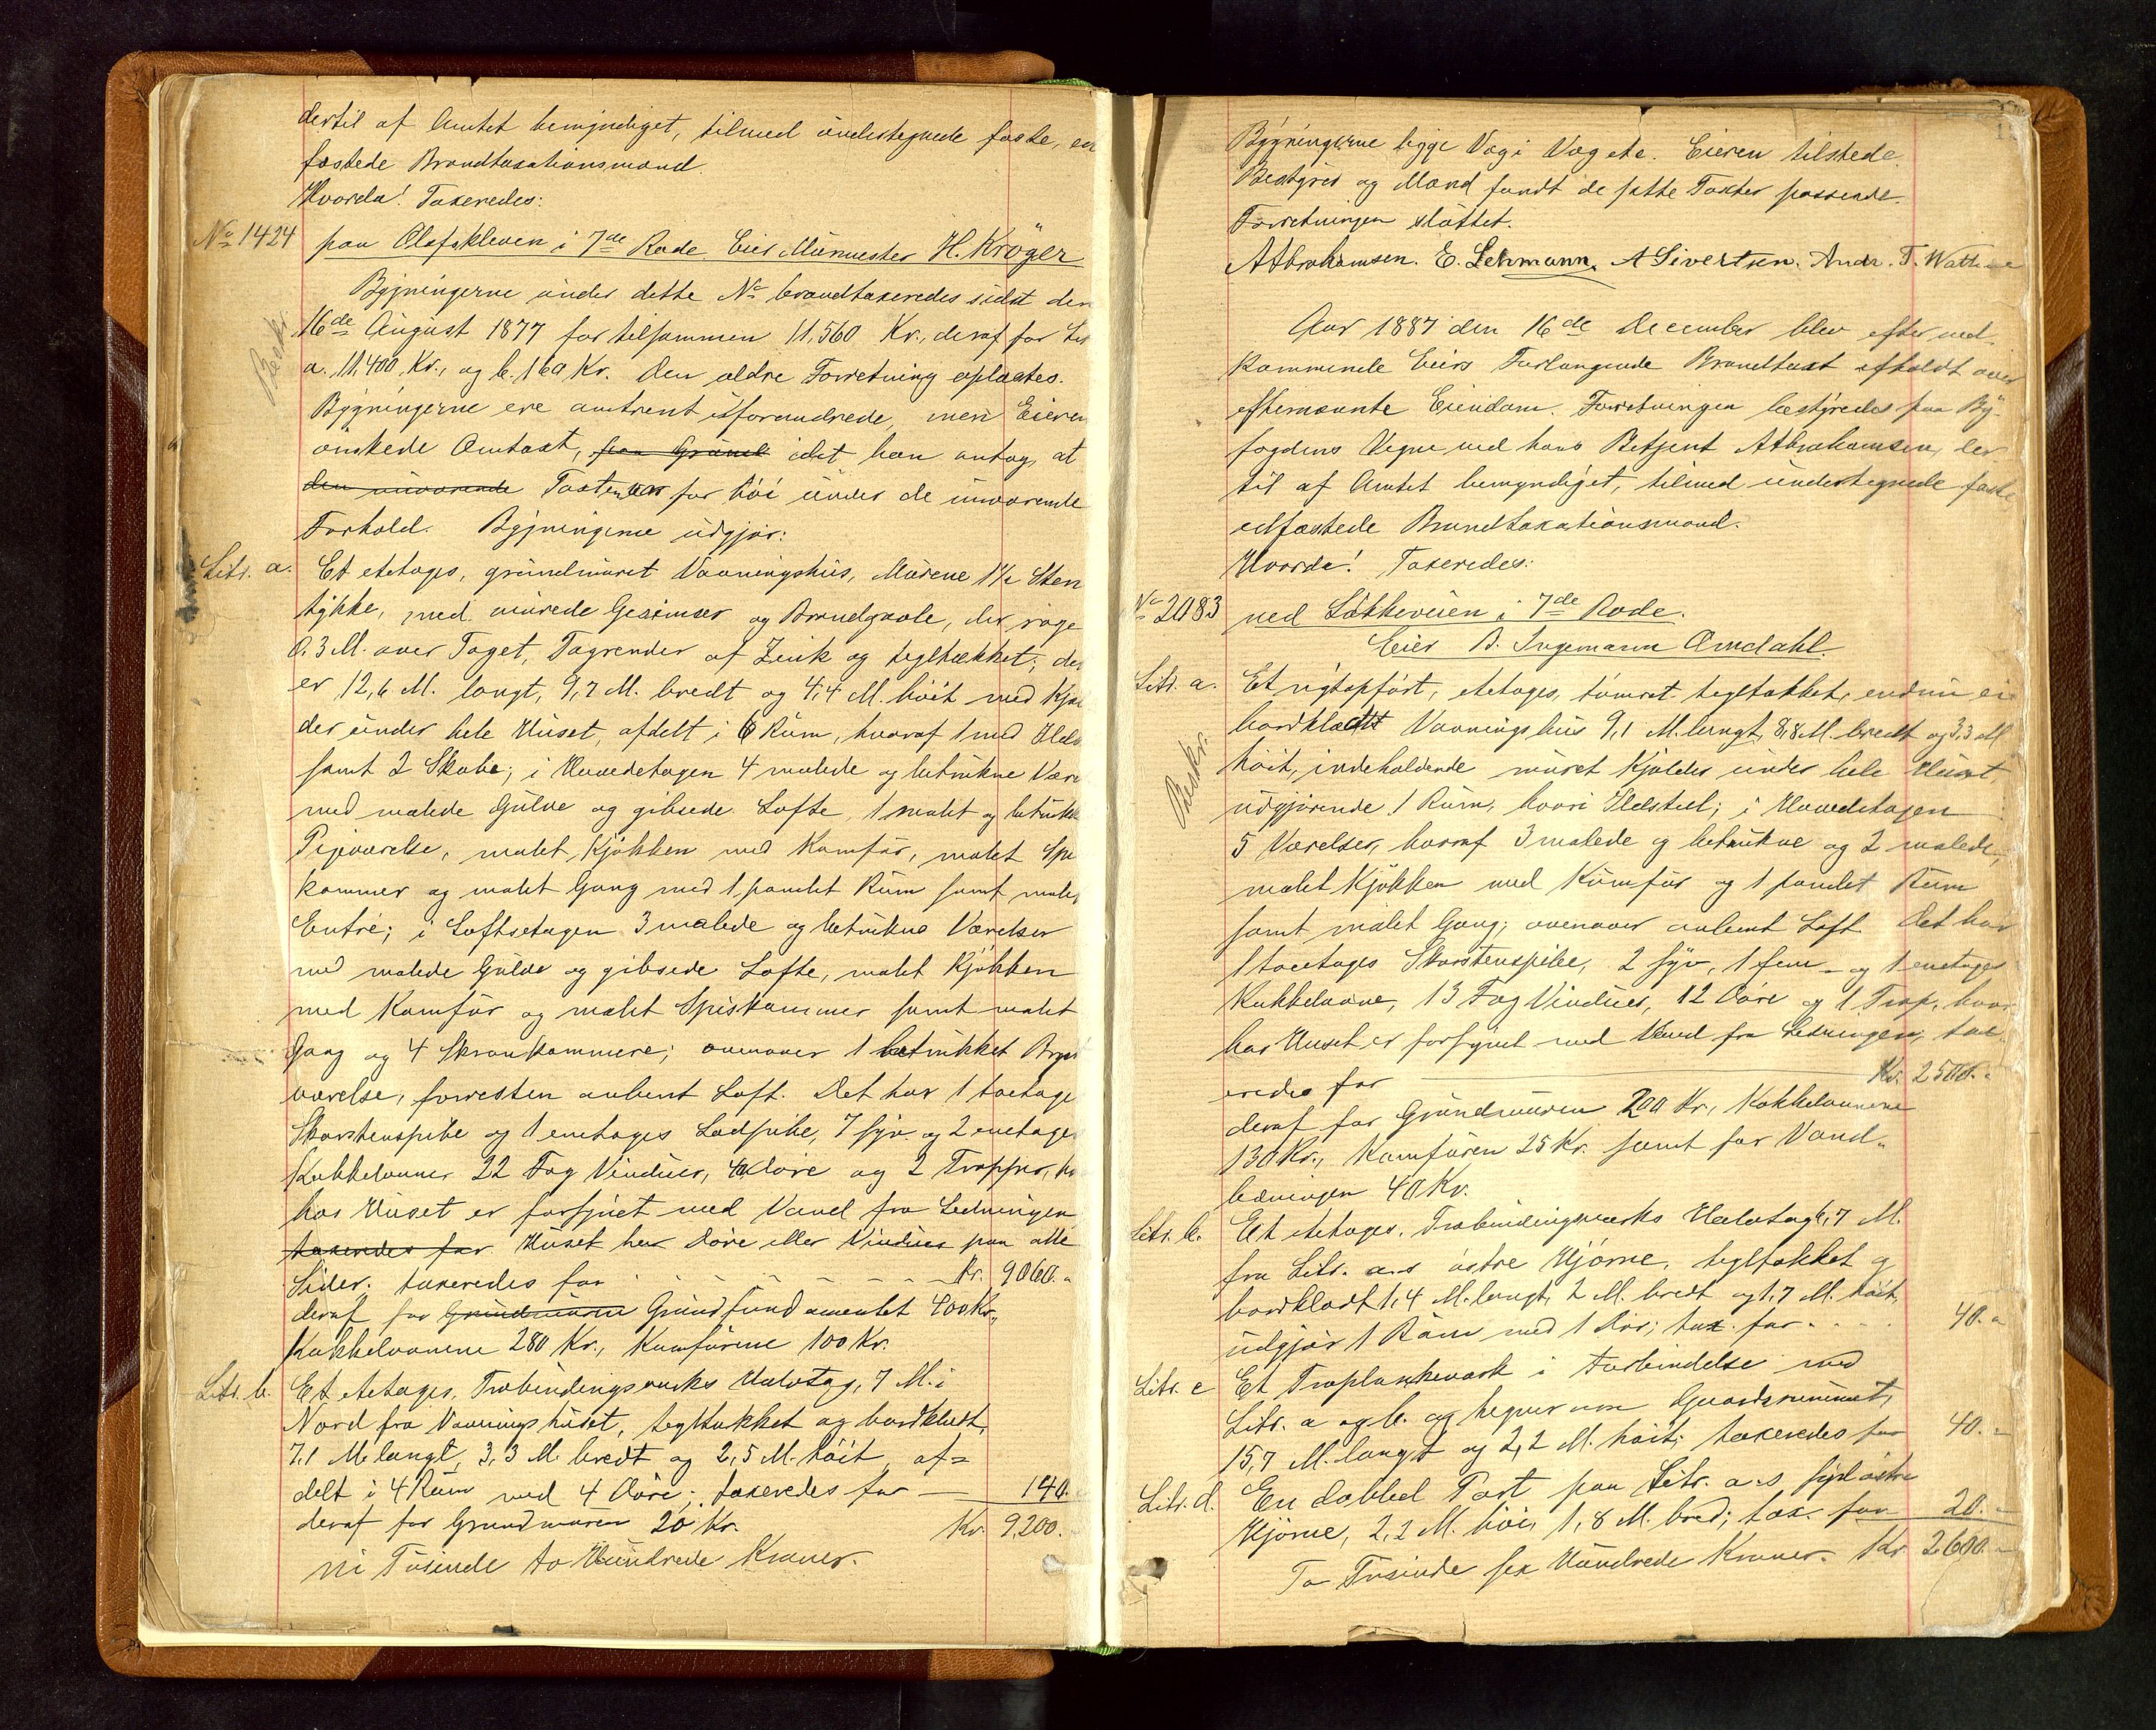 dertil af Amtet bemyndiget, tilmed undertegnede faste, ed
fæstede Brandtaxationsmænd.
Hvorda! Taxeredes:
No 1424 paa Olafskleven i 7de Rode. Eier Murmester H. Kröger
Bygningerne under dette No brandtaxeredes sidst den
16de August 1877 for tilsammen 11,560 Kr., deraf for Litr
a. 11,400 Kr., og b. 160 Kr. Den ældre Forretning oplæstes.
Beskr.
Bygningerne ere omtrent uforandrede, men Eieren
ønskede Omtaxt, paa Grund idet han antog, at
den nuværende Taxten var for høi under de nuværende
Forhold. Bygningerne udgjør:
Litr. a. Et etetages, grundmuret Vaaningshus, Murene 1½ Sten
tykke, med murede Gesimser og Brandgavle, der rage
0.3 M. over Taget, Tagrender af Zink og tegltækket; det
er 12,6 M. langt, 9,7 M. bredt og 4,4 M. høit med Kjæl
der under hele Huset, afdelt i 6 Rum, hvoraf 1 med Ildst
samt 2 Skabe; i Hovedetagen 4 malede og betrukne Være
med malede Gulve og gibsede Lofte, 1 malet og betrukk
Pigeværelse, malet Kjøkken med Komfur, malet Spi
kammer og malet Gang med 1 panelet Rum samt malet
Entré; i Loftsetagen 3 malede og betrukne Værelser
med malede Gulve og gibsede Lofte, malet Kjøkken
med Komfur og malet Spiskammer samt malet
Gang og 4 Skraakammere; ovenover 1 betrukket Bryst
værelse, forresten aabent Loft. Det har 1 toetages
Skorstenspibe og 1 enetages Lodpibe, 7 fyr- og 2 enetages
Kakkelovner 22 Fag Vinduer, 40 Døre og 2 Trapper, hv
hos Huset er forsynet med Vand fra Ledningen
taxeredes for. Huset har Døre eller Vinduer paa alle
Sider; taxeredes for - - - - - - Kr. 9060.
deraf for Grundmuren Grundfundamentet 400 Kr.,
Kakkelovnene 280 Kr., Komfurene 100 Kr.
Litr. b. Et etetages, Træbindingsværks Halvtag, 7 M. i
Nord fra Vaaningshuset, tegltækket og bordklædt,
7,1 M. langt, 3,3 M. bredt og 2,5 M. høit, af=
delt i 4 Rum med 4 Døre; taxeredes for — 140.
deraf for Grundmuren 20 Kr. Kr. 9,200.
ni Tusinde to Hundrede Kroner.
Bygningerne ligge Væg i Væg etc. Eieren tilstede.
Bestyrer og Mænd fandt de satte Taxter passende.
Forretningen sluttet.
A Abrahamsen. E. Lehmann. A Sivertsen. Andr. T. Watthne
Aar 1887 den 16de December blev efter ved-
kommende Eiers Forlangende Brandtaxt afholdt over
efternævnte Eiendom. Forretningen bestyredes paa By-
fogdens Vegne ved hans Betjent A Abrahamsen, der
til af Amtet bemyndiget, tilmed undertegnede faste
edfæstede Brandtaxationsmænd.
Hvorda! Taxeredes:
No 2083 ved Løkkeveien i 7de Rode.
Eier B. Ingemann Omdahl.
Litr. a. Et nyt opført, etetages, tømret tegltækket, endnu ei
bordklædt Vaaningshus 9,1 M. langt, 8,8 M. bredt og 3,3 M
Beskr.
høit, indeholdende muret Kjælder under hele Huset,
udgjørende 1 Rum, hvori Ildsted; i Hovedetagen
5 Værelser, hvoraf 3 malede og betrukne og 2 malede,
malet Kjøkken med Komfur og 1 panelet Rum
samt malet Gang; ovenover aabent Loft. Det har
1 toetages Skorstenspibe, 2 fyr-, 1 fem- og 1 enetages
Kakkelovne, 13 Fag Vinduer, 12 Døre og 1 Trap, hvor
hos Huset er forsynet med Vand fra Ledningen, tax
eredes for — Kr. 2500.
deraf for Grundmuren 200 Kr., Kakkelovnene
130 Kr., Komfuren 25 Kr. samt for Vand-
ledningen 40 Kr.
Litr. b. Et etetages, Træbindingsværks Halvtag, 7 M.
fra Litr. a.s østre Hjørne, tegltækket og
bordklædt 1,4 M. langt, 2 M. bredt og 1,7 M. høit,
udgjør 1 Rum med 1 Dør; tax. for . . . . 40.
Litr. c Et Træplankeværk i Forbindelse med
Litr. a og b. og hegner om Gaardsrummet,
15,7 M. langt og 2,2 M. høit; taxeredes for 40.
Litr. d. En dobbel Port paa Litr. a.s sydøstre
Hjørne, 2,2 M. høi, 1,8 M. bred; tax. for 20.
To Tusinde sex Hundrede Kroner. Kr. 2600.